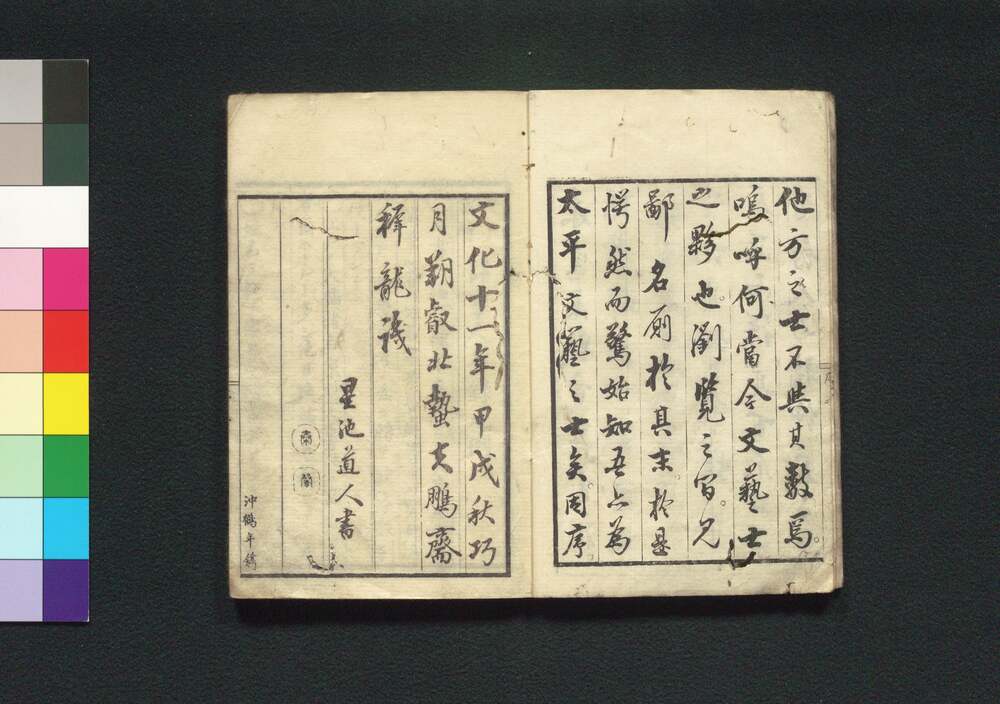 他方之士不與其數焉。
嗚呼何當今文藝士
之夥也。瀏覽之間。見
鄙名厠於其末。於是
愕然而驚始知吾亦為
太平文藝之士矣。因序。
文化十一年甲戌秋巧
月朔叡北蟄夫鵬齋
稺龍識
星池道人書
沖鶴年鐫